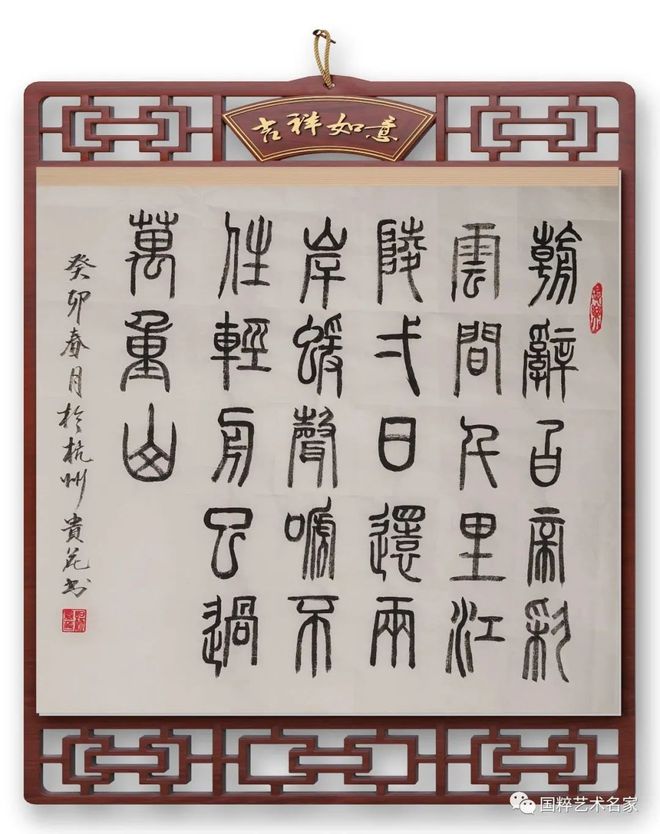 吉祥如意
朝辭白帝彩
雲間千里江
陵弌日還兩
岸蝯聲嗁不
住輕舟已過
萬重山
癸卯春月於杭州貴花书
国粹艺术名家